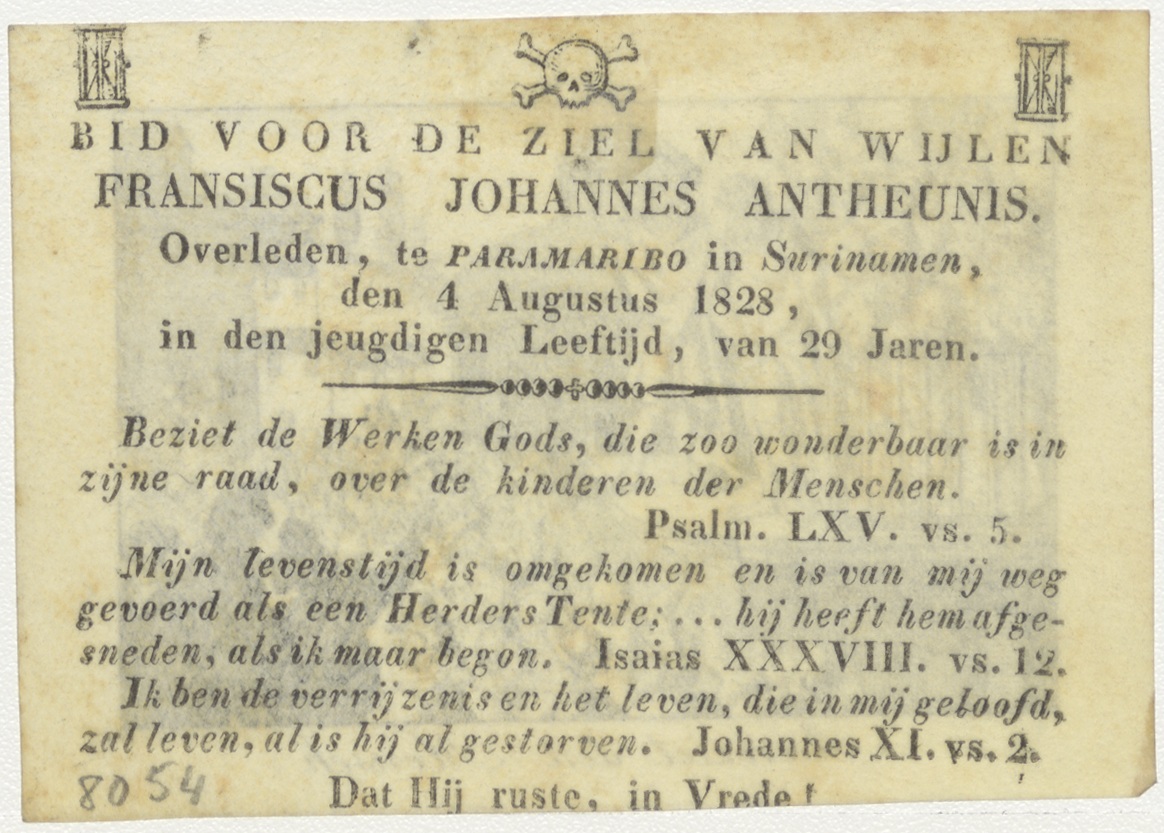 BID VOOR DE ZIEL VAN WIJLEN
FRANSISCUS JOHANNES ANTHEUNIS.
Overleden, te PARAMARIBO in Surinamen,
den 4 Augustus 1828,
in den jeugdigen Leeftijd, van 29 Jaren.
Beziet de Werken Gods, die zoo wonderbaar is in
zijne raad, over de kinderen der Menschen.
Psalm. LXV. vs. 5.
Mijn levenstijd is omgekomen en is van mij weg
gevoerd als een Herders Tente; ... hij heeft hem afge-
sneden, als ik maar begon. Isaias XXXVIII. vs. 12.
Ik ben de verrijzenis en het leven, die in mij geloofd,
zal leven, al is hij al gestorven. Johannes XI. vs. 2.
8054 Dat Hij ruste, in Vrede!